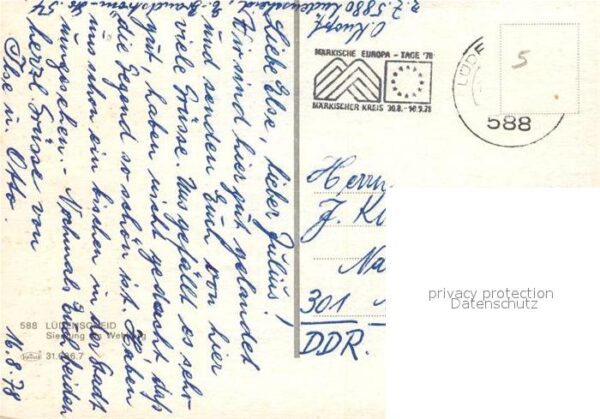 O. Knopf,
z. Z. 5880 Lüdenscheid,
Liebe Else, lieber Julius!
Wir sind hier gut gelandet
und senden Euch von hier
viele Grüsse. Uns gefällt es sehr
gut, haben nicht gedacht, daß
die Gegend so schön ist. Haben
uns schon ein bischen in der Stadt
umgesehen. - Nochmals Euch beiden
herzl. Grüsse von
Ilse u. Otto.
16.8.78
588 LÜDENSCHEID
Siedlung
MÄRKISCHE EUROPA - TAGE '78
MÄRKISCHER KREIS 30.8. - 10.9.78
LÜDE
588
5
Herrn
J. K
Na
301
DDR.
privacy protection
Datenschutz